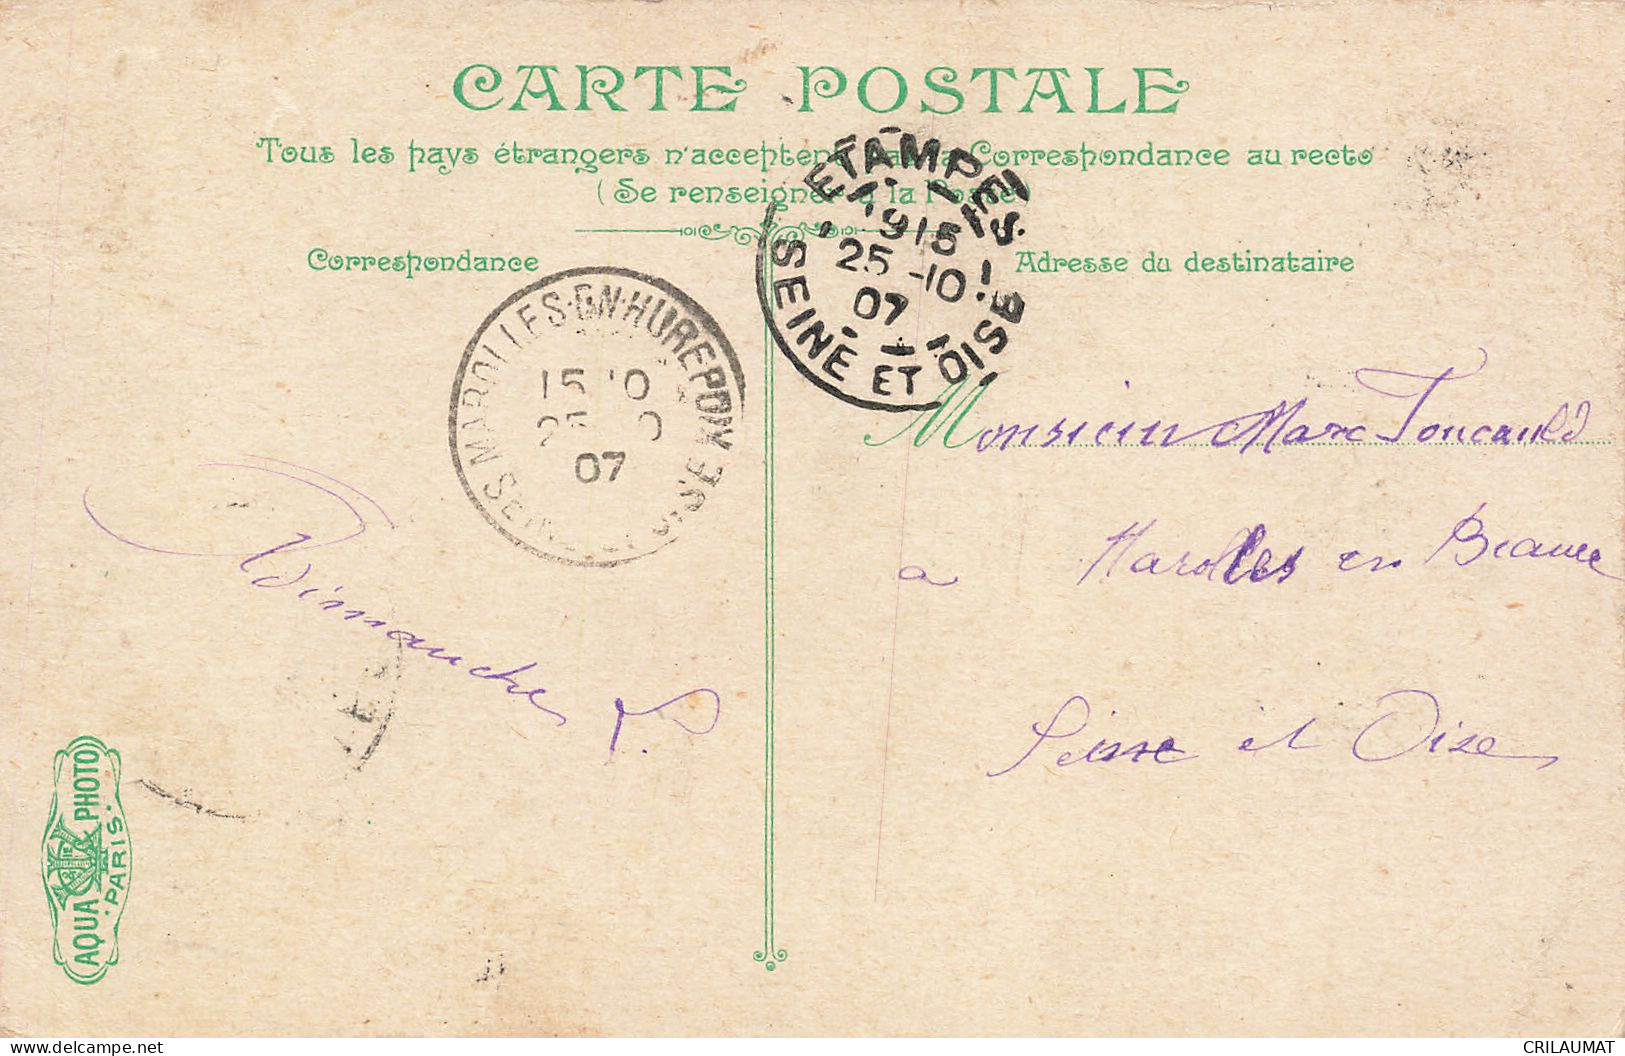 CARTE POSTALE
Tous les pays étrangers n'acceptent pas la Correspondance au recto
(Se renseigner à la Poste)
Correspondance
Adresse du destinataire
ETAMPES
1915
25 -10
07
SEINE ET OISE
MAROLLES-EN-HUREPOIX
15
07
SEINE ET OISE
Monsieur Marc Foucauld
à Marolles en Beauce
Seine et Oise
Dimanche
AQUA PHOTO
PARIS
CRILAUMAT